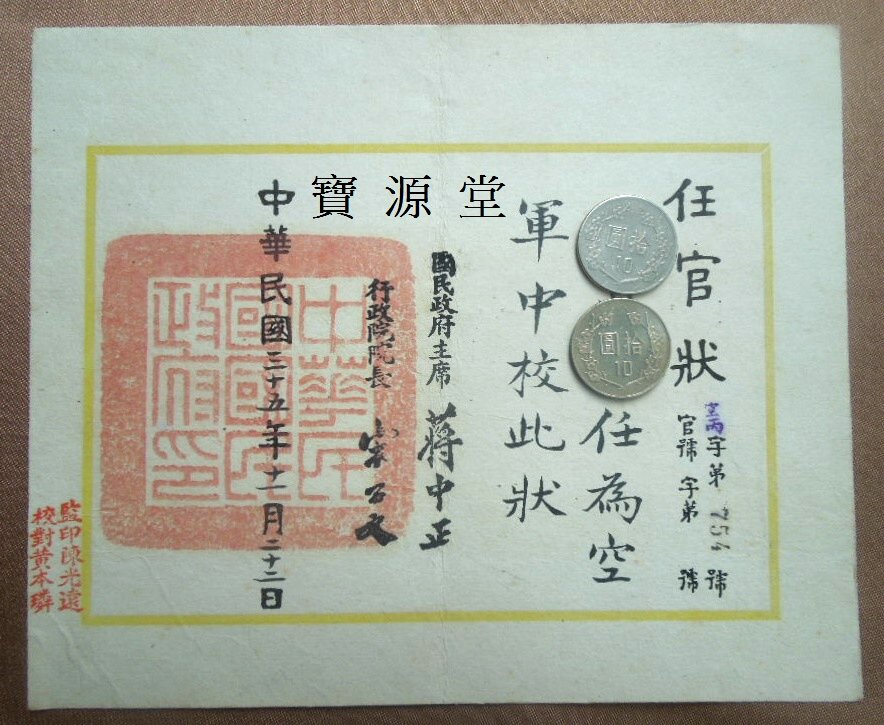 寶源堂
任官狀
空丙字第754號
官號字第 號
任為空
軍中校此狀
國民政府主席 蔣中正
行政院院長 宋子文
中華民國三十五年十一月二十二日
中華民國國民政府印
監印陳光遠
校對黃本璘
拾圓
10
拾圓
10